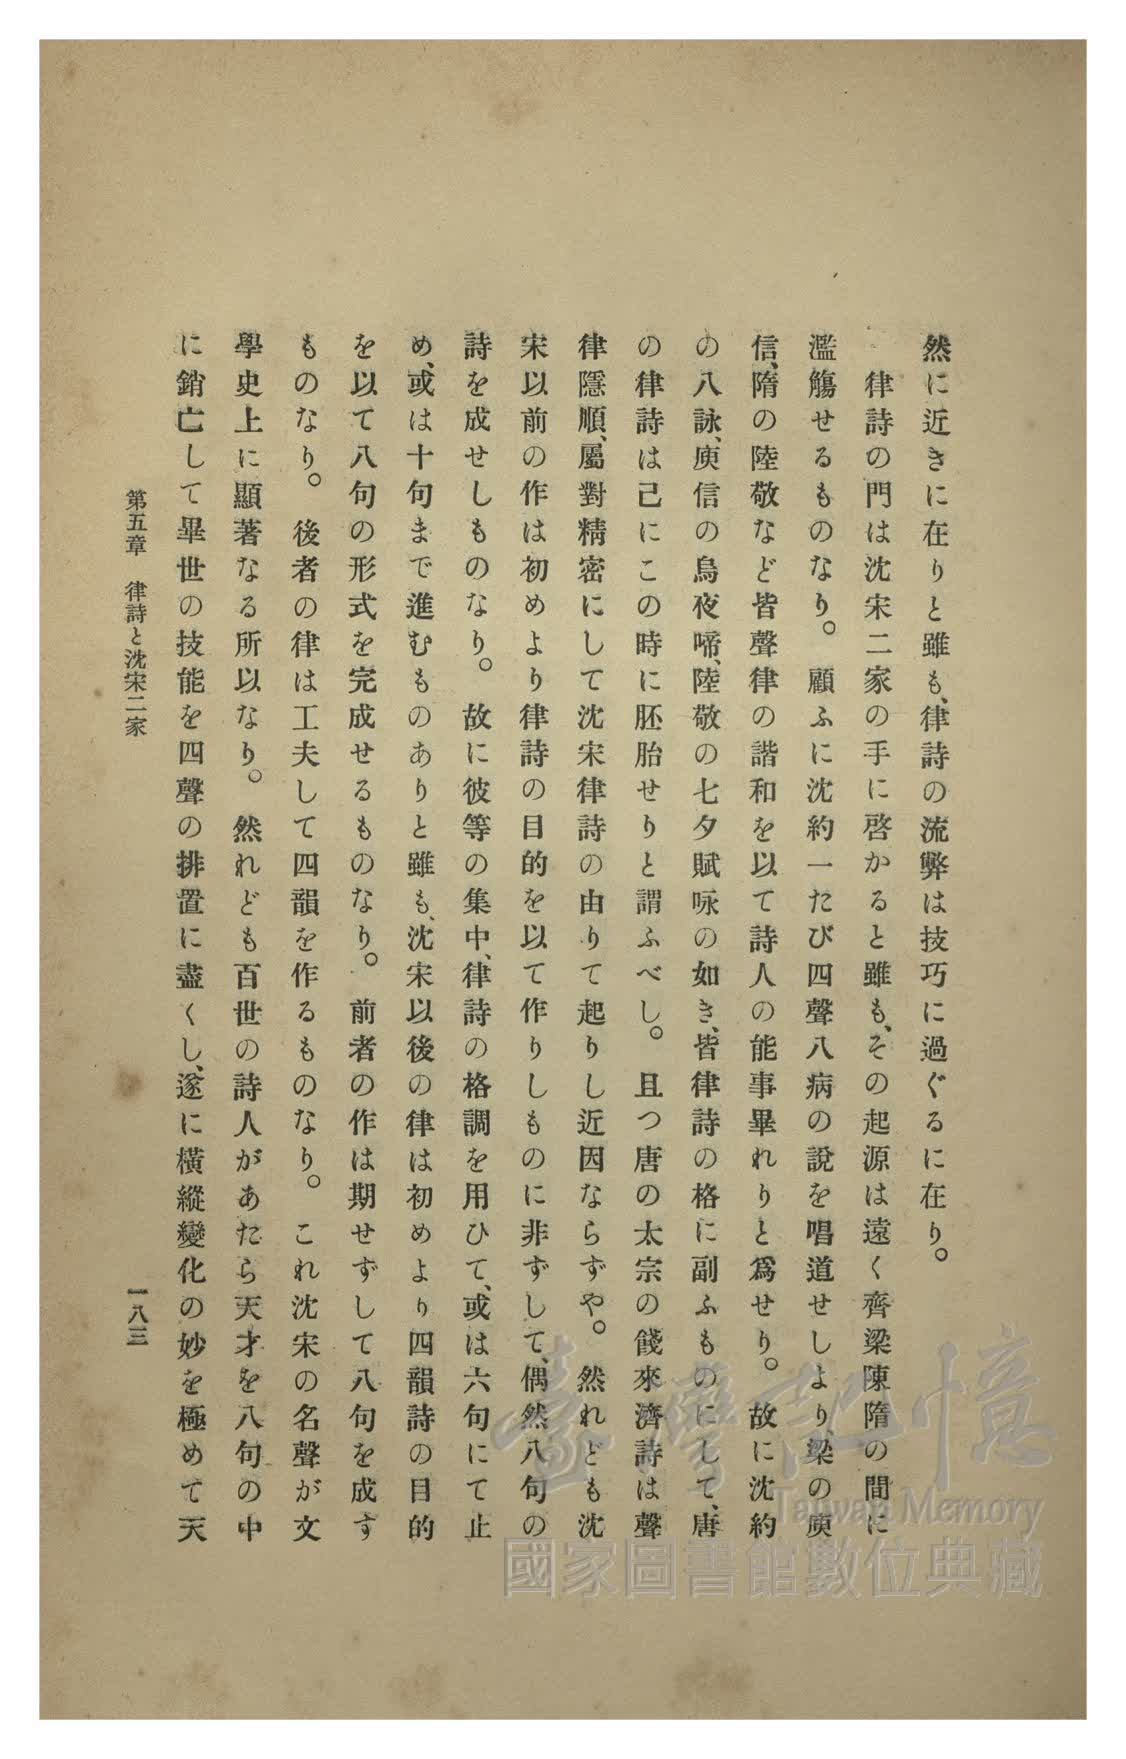 然に近きに在りと雖も、律詩の流弊は技巧に過ぐるに在り。
律詩の門は沈宋二家の手に啓かると雖も、その起源は遠く齊梁陳隋の間に
濫觴せるものなり。顧ふに沈約一たび四聲八病の說を唱道せしより、梁の庾
信、隋の陸敬など皆聲律の諧和を以て詩人の能事畢れりと爲せり。故に沈約
の八詠、庾信の烏夜啼、陸敬の七夕賦咏の如き、皆律詩の格に副ふものにして、唐
の律詩は已にこの時に胚胎せりと謂ふべし。且つ唐の太宗の餞來濟詩は聲
律隱順、屬對精密にして沈宋律詩の由りて起りし近因ならずや。然れども沈
宋以前の作は初めより律詩の目的を以て作りしものに非ずして、偶然八句の
詩を成せしものなり。故に彼等の集中、律詩の格調を用ひて、或は六句にて止
め、或は十句まで進むものありと雖も、沈宋以後の律は初めより四韻詩の目的
を以て八句の形式を完成せるものなり。前者の作は期せずして八句を成す
ものなり。後者の律は工夫して四韻を作るものなり。これ沈宋の名聲が文
學史上に顯著なる所以なり。然れども百世の詩人があたら天才を八句の中
に銷亡して畢世の技能を四聲の排置に盡くし、遂に橫縱變化の妙を極めて天
第五章　律詩と沈宋二家
一八三
臺灣記憶
Taiwan Memory
國家圖書館數位典藏